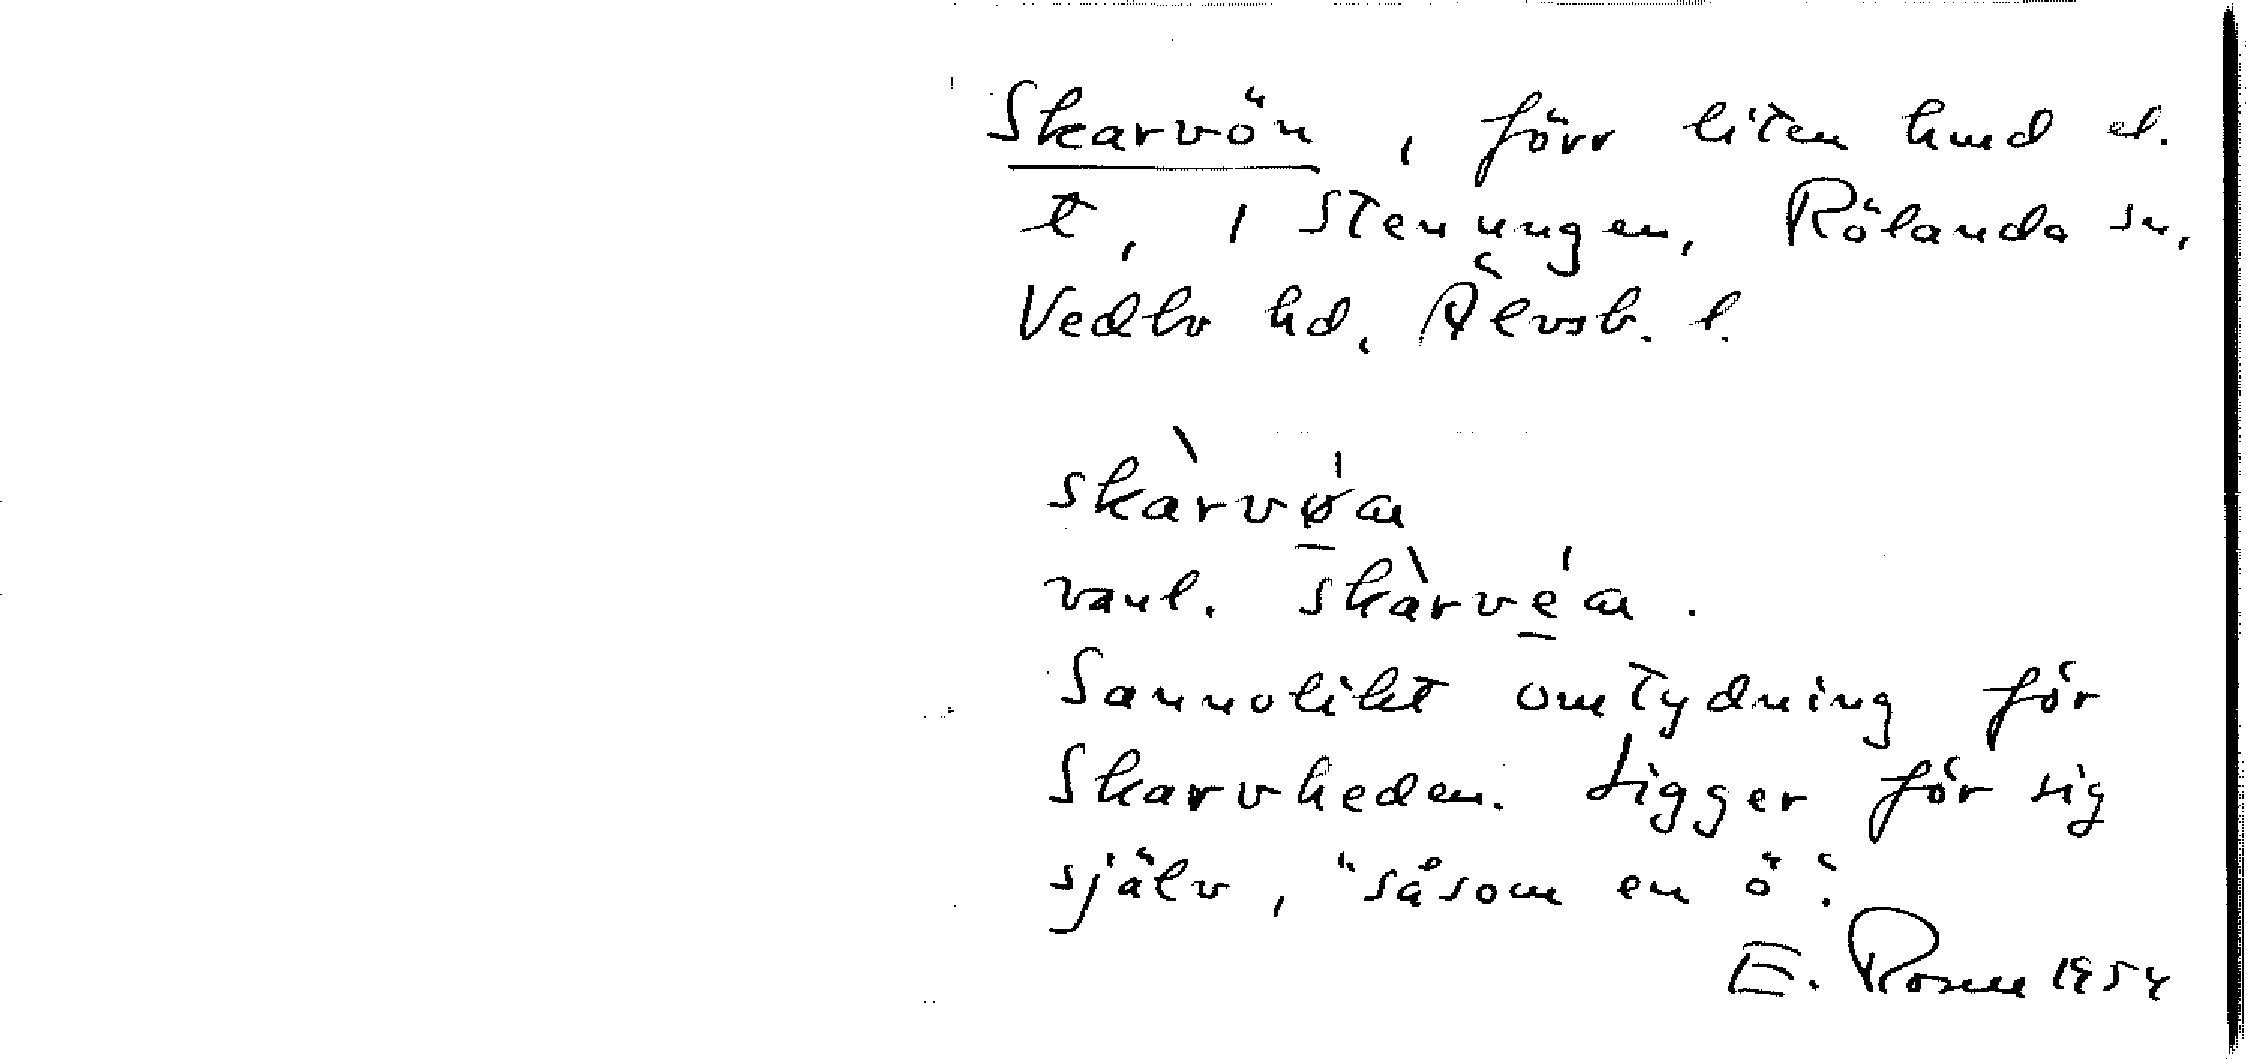 Skarvön, förr liten hmd el.
t, i Stenungen, Rölanda sn,
Vedbo hd, Älvsb. l.
skàrvǿ̱n
vanl. skàrvé̱n.
Sannolikt omtydning för
Skarvheden. Ligger för sig
själv, "såsom en ö".
E. Rosell 1954